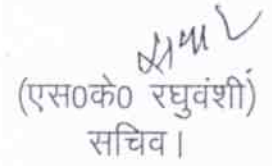 (एस0के0 रघुवंशी)
सचिव।